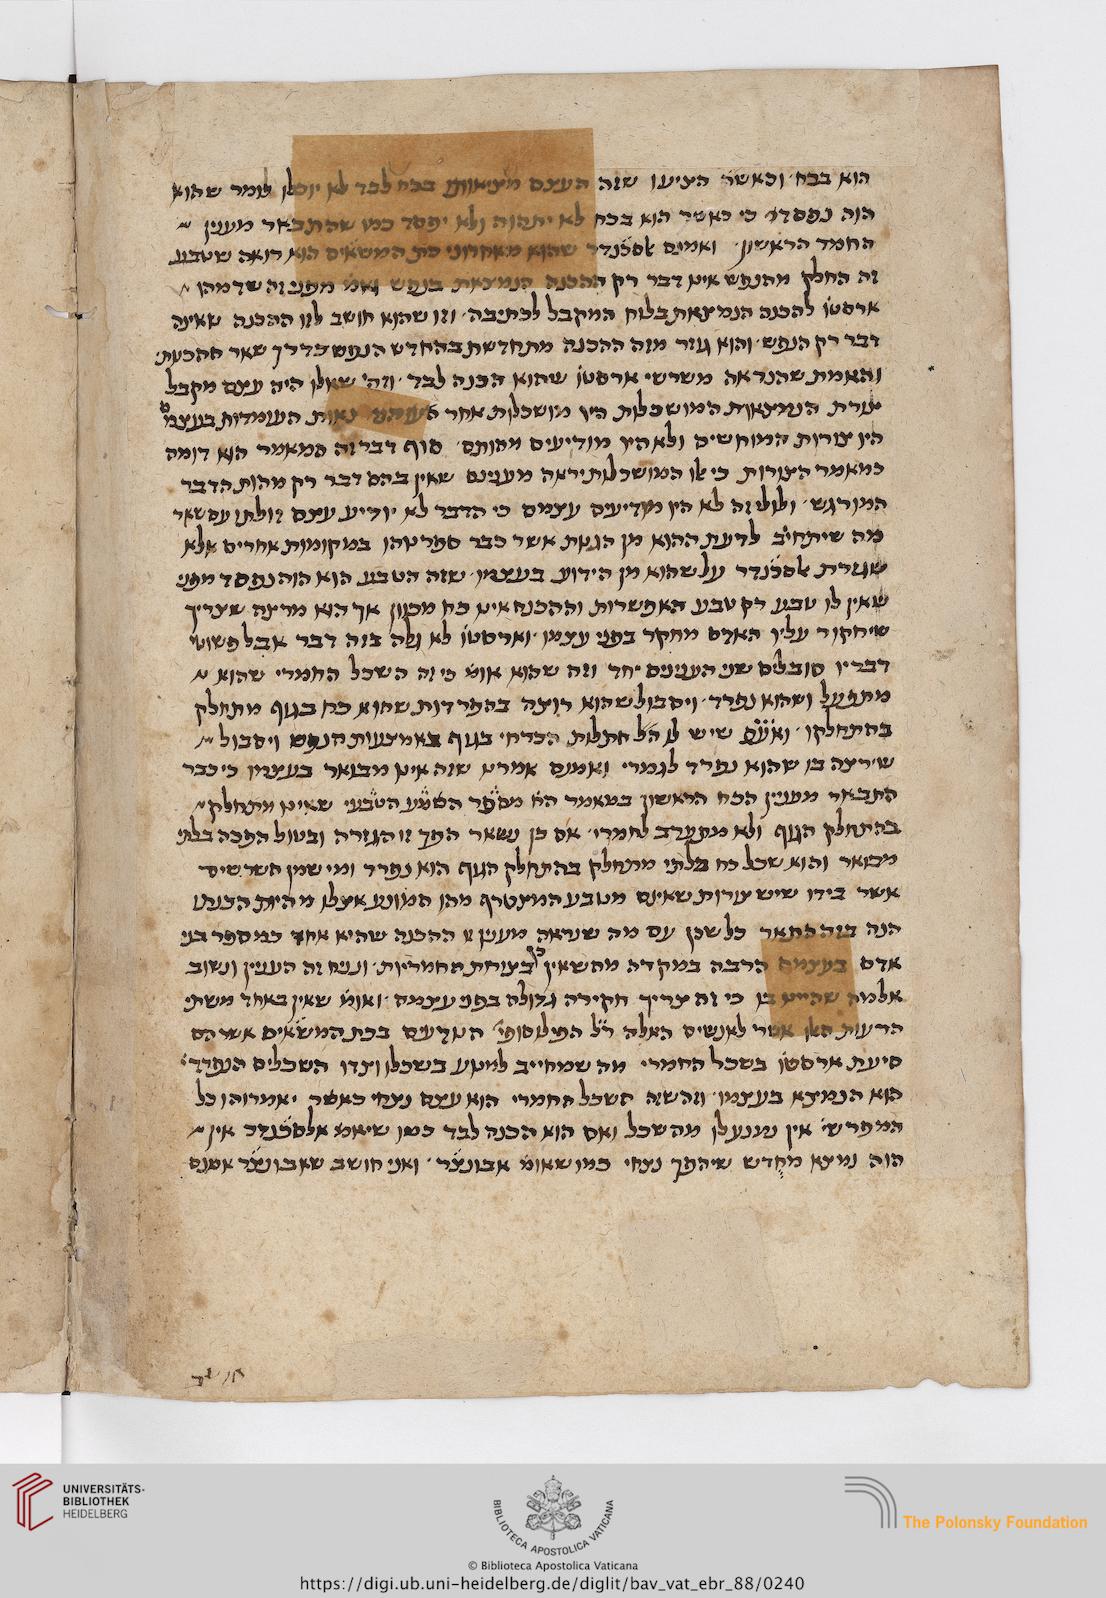 הוא בכח וכאשר הציעו שזה העצם מציאותו בכח לבד לא יוכלו לומר שהוא
הוה נפסד כי כאשר הוא בכח לא יתהוה ולא יפסד כמו שהתבאר מענין
החמר הראשון ואמנם אלסכנדר שהוא מאחרוני כת המשאים הוא רואה שטבע
זה החלק מהנפש אינו דבר רק ההכנה הנמצאת בנפש ואמ' מפני זה שדמהו
ארסטו להכנה הנמצאת בלוח המקבל לכתיבה וזו שהוא חושב לזו ההכנה שאינה
דבר רק הנפש והוא גוזר מזה ההכנה מתחדשת בהחדש הנפש כדרך שאר ההכנות
והאמת שהנראה משרשי ארסטו שהוא הכנה לבד וזה שאלו היה עצם מקבל
הנמצאות המושכלות היו מושכלות אחר העומדות בעצמ'
היו צורות המוחשים ולא היו מודיעים מהותם סוף דבר זה המאמר הוא דומה
כמאמר הצורות כי אלו המושכלות יראה מענינם שאין בהם דבר רק מהות הדבר
המורגש ולולי זה לא היו מודיעים עצמם כי הדבר לא יודיע עצם זולתו עם שאר
מה שיתחיב לדעת ההוא מן הגנות אשר כבר ספרנוהו במקומות אחרים אלא
שגזרת אלסכנדר על שהוא מן הידוע בעצמו שזה הטבע הוא הוה נפסד מפני
שאין לו טבע רק טבע האפשרות וההכנה אינו כח מכוון אך הוא מרוצה שצריך
שיחקור עליו האדם מחקר בפני עצמו וארסטו לא גלה בזה דבר אבל פשוטי
דבריו סובלים שני הענינים יחד וזה שהוא אומ' כי זה השכל החמרי שהוא
מתפעל ושהוא נפרד ויסבול שהוא רוצה בהפרדות שהוא כח בגוף מתחלק
בהתחלקו שיש לו התלות הכרחי בגוף באמצעות הנפש ויסבול
שירצה בו שהוא נפרד לגמרי ואמנם אמרנו שזה אינו מבואר בעצמו כי כבר
התבאר מענין הכח הראשון במאמר הח' מספר השמע הטבעי שאינו מתחלק
בהתחלק הגוף ולא מתערב לחמרי אם כן נשאר הפך זו הגזרה ובטול הפכה בלתי
מבואר והוא שכל כח בלתי מתחלק בהתחלק הגוף הוא נפרד ומי שמן השרשים
אשר בידו שיש צורות שאינם מטבע המצטרף מהו המונע אצלו מהיות הכנתו
הנה בזה התאר כל שכן עם מה שנראה מענין זו ההכנה שהיא אחד כמספר בני
אדם בעצמה הרבה במקרה מה שאין כן בצורות החמריות ונניח זה העניין ונשוב
אל מה שהיינו בו כי זה צריך חקירה גדולה בפני עצמה ואומ' שאין באחד משתי
הדעות האלו אשר לאנשים האלה ר"ל הפילוסופי' הנודעים בכת המשאים אשר הם
סיעת ארסטו בשכל החמרי מה שמחייב למנוע בשכלו וצדו השכלים הנפרד'
הוא הנמצא בעצמו וזה שזה השכל החמרי הוא עצם נצחי כאשר יאמרוהו כל
המפרשי' אין נמנע לו מהשכל ואם הוא הכנה לבד כמו שיאמ' אלסכנדר אין
הוה נמצא מחדש שיהפך נצחי כמו שאומ' אבונצר ואני חושב שאבונצר אמנם
UNIVERSITÄTS-
BIBLIOTHEK
HEIDELBERG
BIBLIOTECA APOSTOLICA VATICANA
The Polonsky Foundation
© Biblioteca Apostolica Vaticana
https://digi.ub.uni-heidelberg.de/diglit/bav_vat_ebr_88/0240